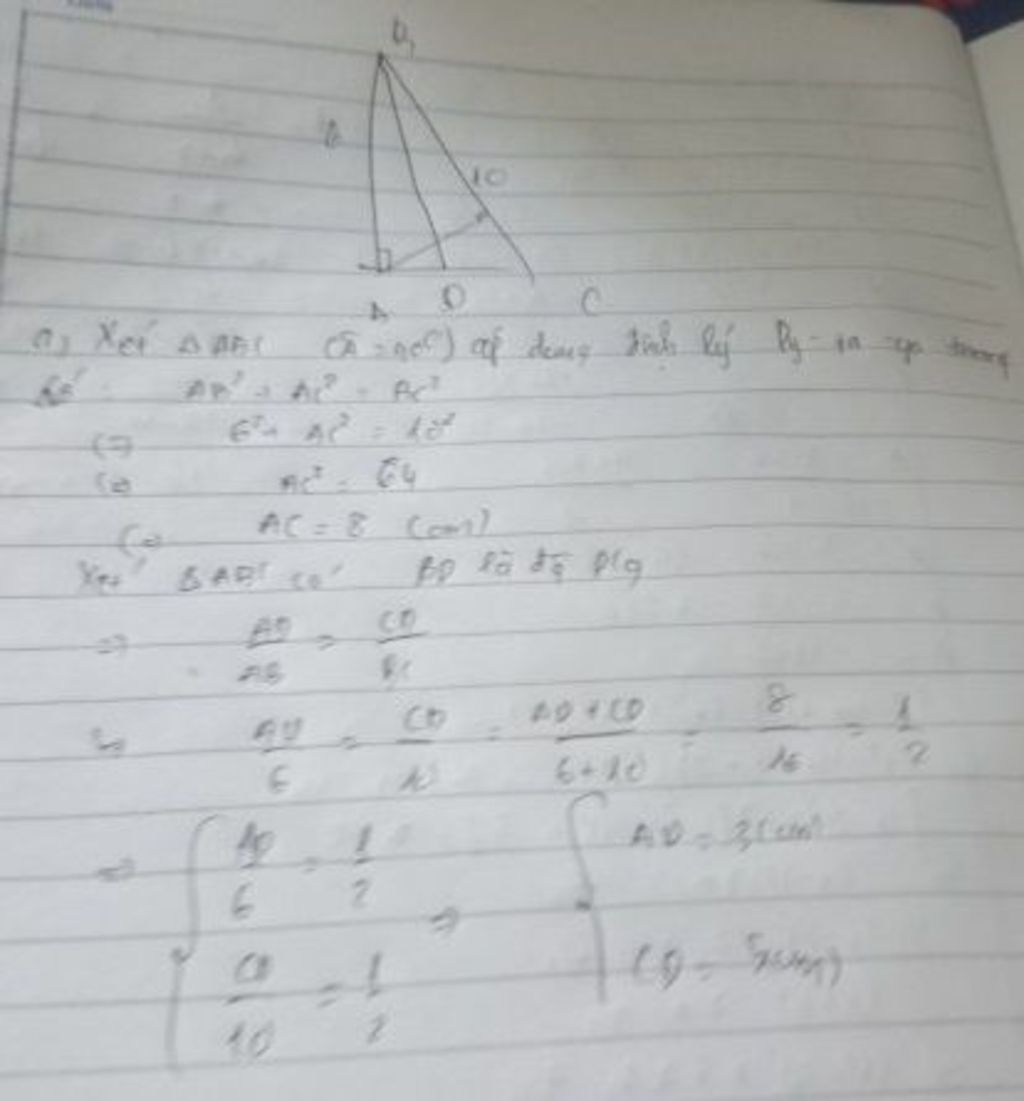 B
6
10
A D C
a, Xét Δ ABC (Â = 90°) áp dụng định lý Py-ta-go trong
AB² + AC² = BC²
(=) 6² + AC² = 10²
(=) AC² = 64
(=) AC = 8 (cm)
Xét Δ ABC có BD là p/g
=> AD/AB = CD/BC
AD/6 = CD/10 = AD + CD/6 + 10 = 8/16 = 1/2
=> { AD/6 = 1/2 => { AD = 3 (cm)
CD/10 = 1/2 CD = 5 (cm)